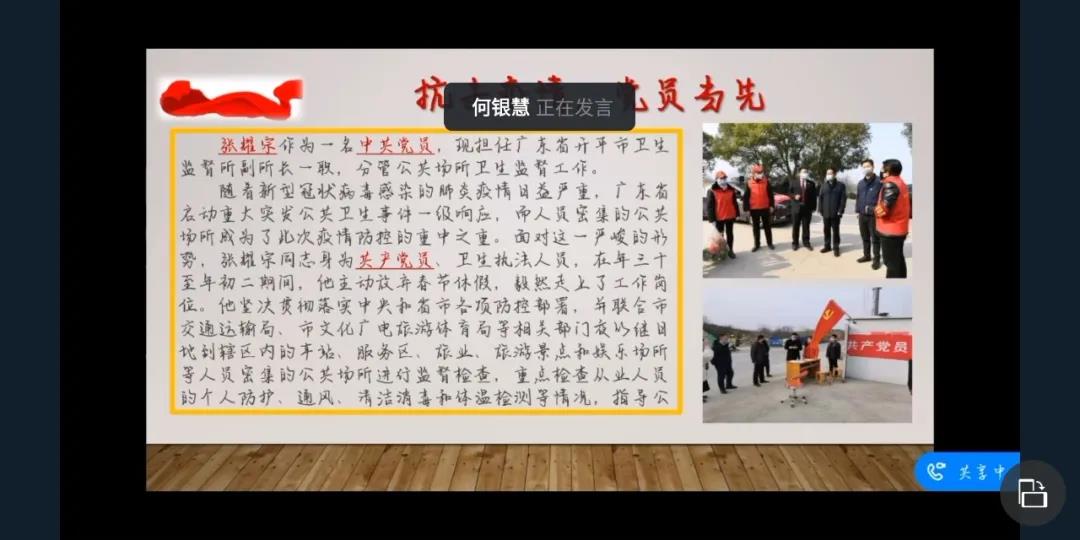 抗
党员为先
何银慧 正在发言
张耀宗作为一名中共党员，现担任广东省开平市卫生
监督所副所长一职，分管公共场所卫生监督工作。
随着新型冠状病毒感染的肺炎疫情日益严重，广东省
启动重大突发公共卫生事件一级响应，而人员密集的公共
场所成为了此次疫情防控的重中之重。面对这一严峻的形
势，张耀宗同志身为共产党员、卫生执法人员，在年三十
至年初二期间，他主动放弃春节休假，毅然走上了工作岗
位。他坚决贯彻落实中央和省市各项防控部署，并联合市
交通运输局、市文化广电旅游体育局等相关部门夜以继日
地到辖区内的车站、服务区、旅业、旅游景点和娱乐场所
等人员密集的公共场所进行监督检查，重点检查从业人员
的个人防护、通风、清洁消毒和体温检测等情况，指导公
共产党员
共享中